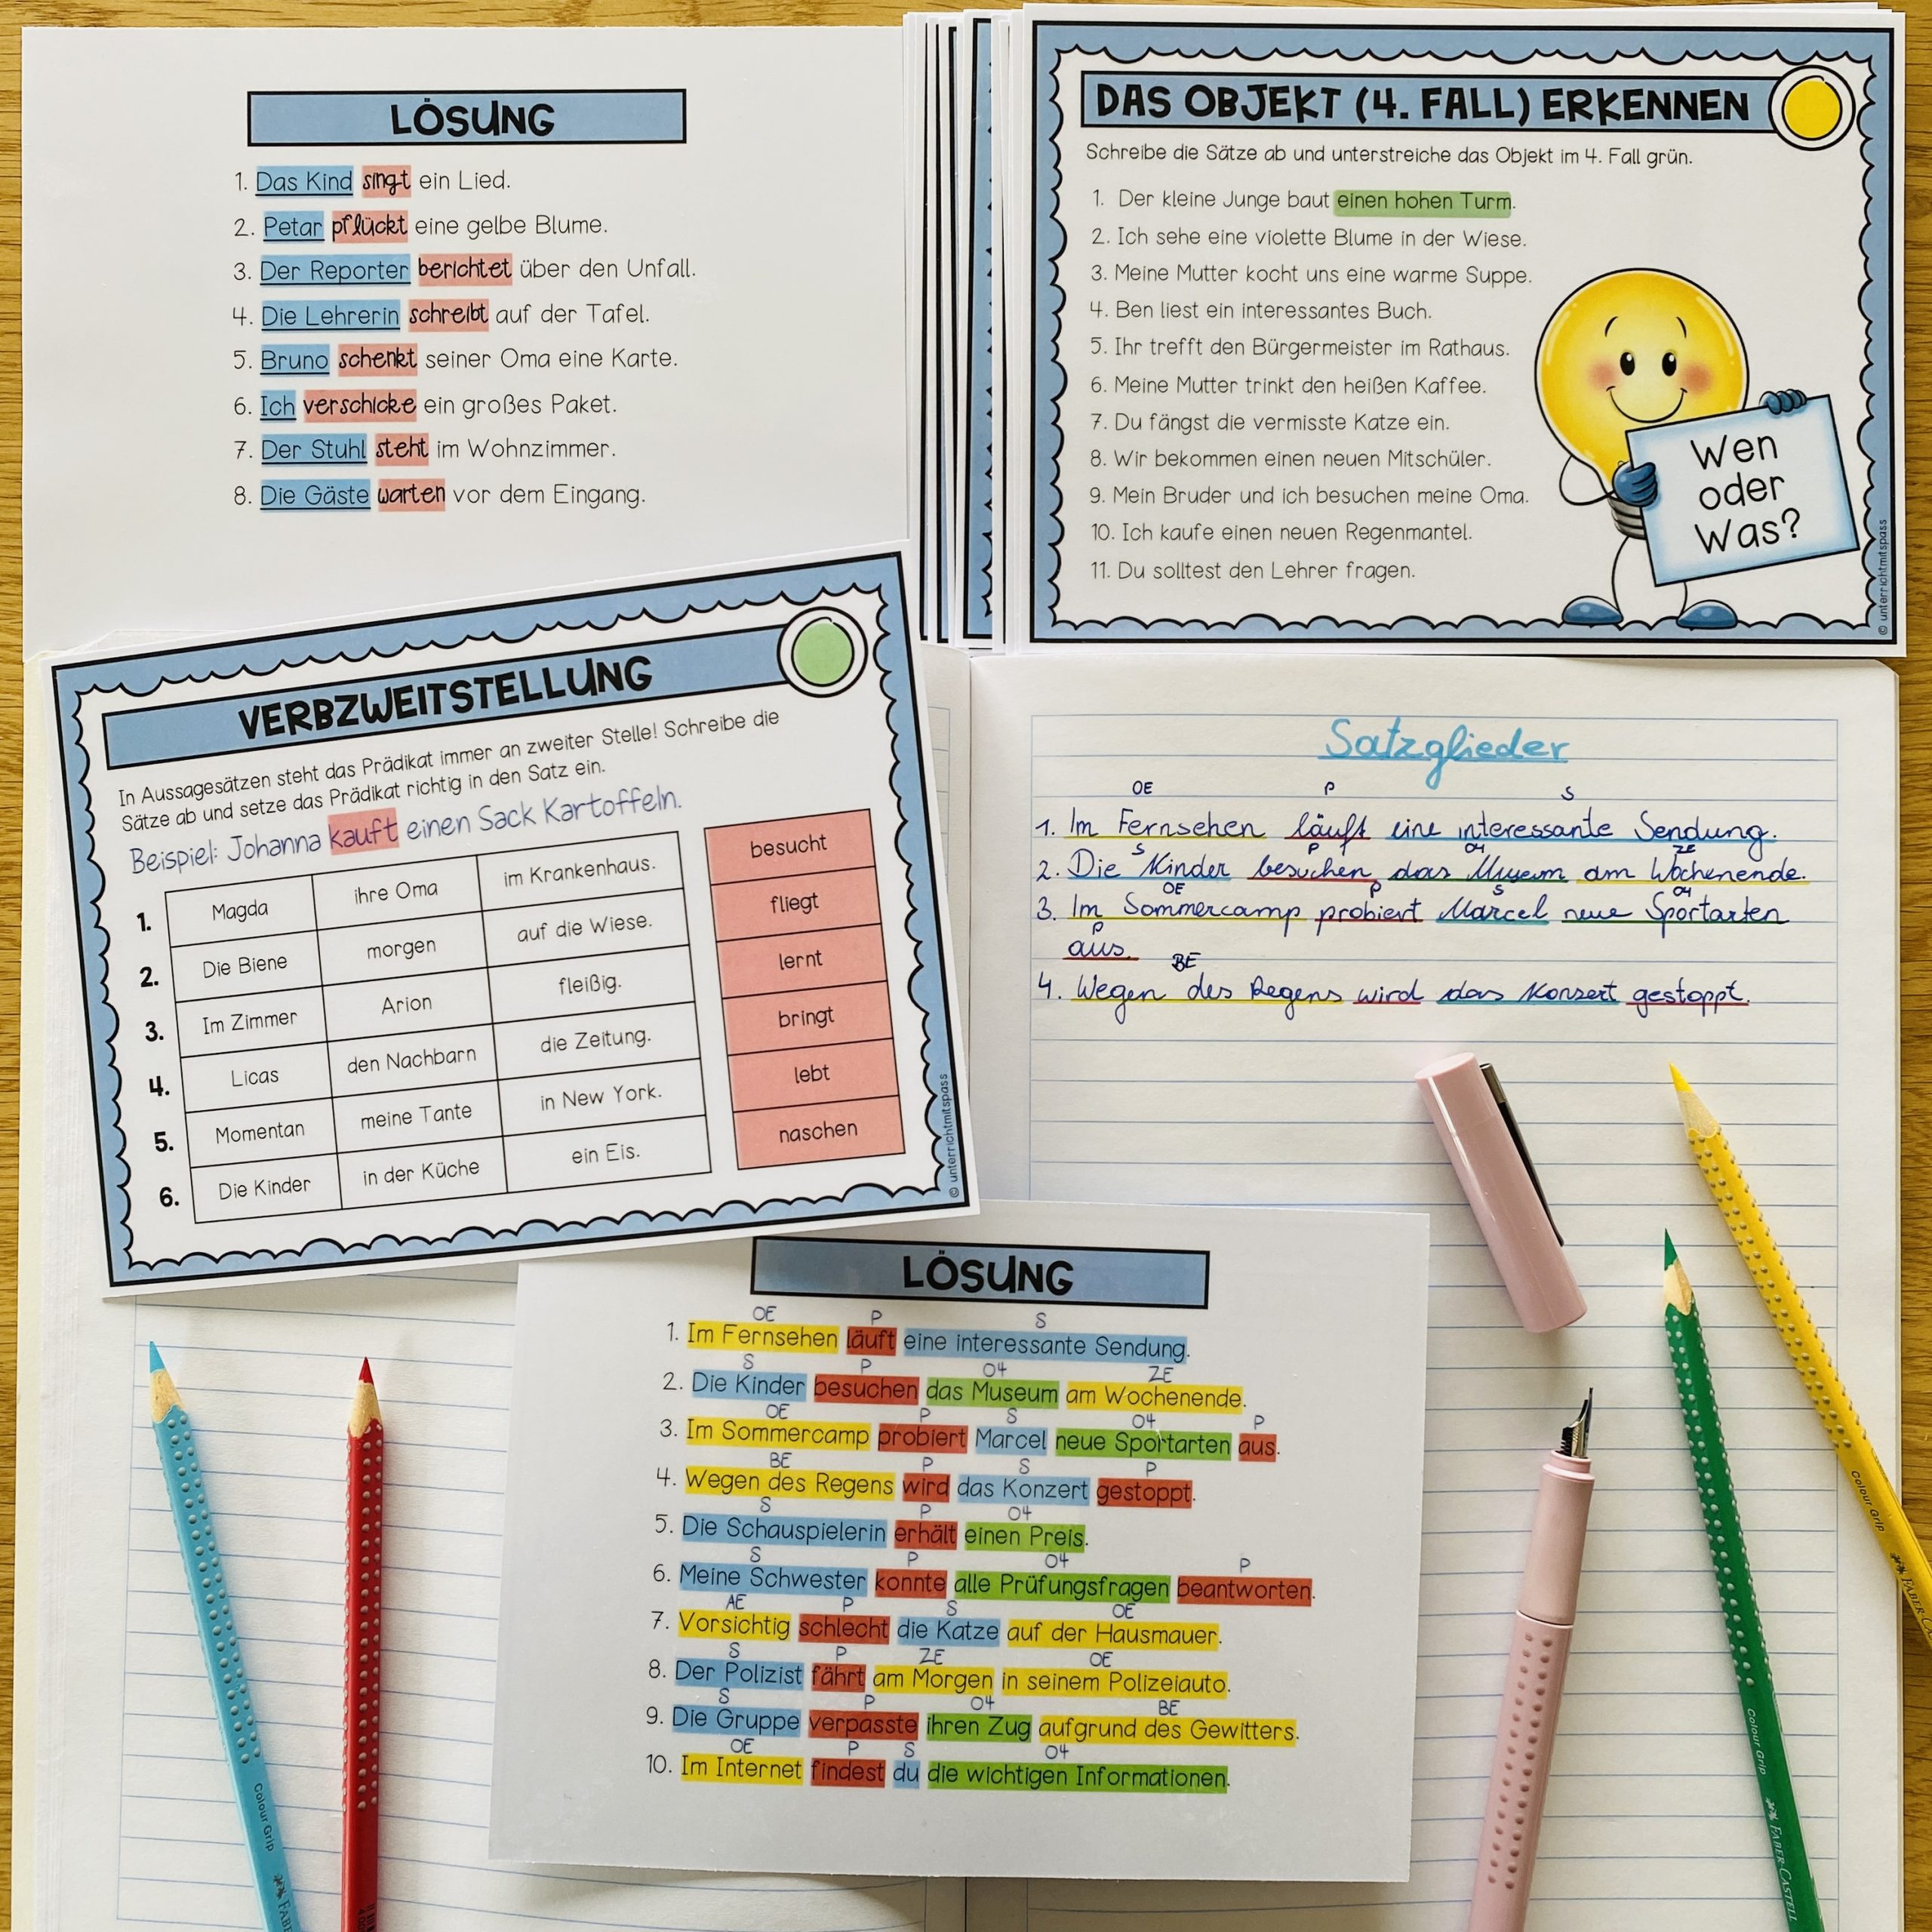 LÖSUNG
1. Das Kind singt ein Lied.
2. Petar pflückt eine gelbe Blume.
3. Der Reporter berichtet über den Unfall.
4. Die Lehrerin schreibt auf der Tafel.
5. Bruno schenkt seiner Oma eine Karte.
6. Ich verschicke ein großes Paket.
7. Der Stuhl steht im Wohnzimmer.
8. Die Gäste warten vor dem Eingang.
DAS OBJEKT (4. FALL) ERKENNEN
Schreibe die Sätze ab und unterstreiche das Objekt im 4. Fall grün.
1. Der kleine Junge baut einen hohen Turm.
2. Ich sehe eine violette Blume in der Wiese.
3. Meine Mutter kocht uns eine warme Suppe.
4. Ben liest ein interessantes Buch.
5. Ihr trefft den Bürgermeister im Rathaus.
6. Meine Mutter trinkt den heißen Kaffee.
7. Du fängst die vermisste Katze ein.
8. Wir bekommen einen neuen Mitschüler.
9. Mein Bruder und ich besuchen meine Oma.
10. Ich kaufe einen neuen Regenmantel.
11. Du solltest den Lehrer fragen.
Wen
oder
Was?
© unterrichtmitspass
VERBZWEITSTELLUNG
In Aussagesätzen steht das Prädikat immer an zweiter Stelle! Schreibe die
Sätze ab und setze das Prädikat richtig in den Satz ein.
Beispiel: Johanna kauft einen Sack Kartoffeln.
1. Magda ihre Oma im Krankenhaus. besucht
2. Die Biene morgen auf die Wiese. fliegt
3. Im Zimmer Arion fleißig. lernt
4. Licas den Nachbarn die Zeitung. bringt
5. Momentan meine Tante in New York. lebt
6. Die Kinder in der Küche ein Eis. naschen
© unterrichtmitspass
Satzglieder
OE P S
1. Im Fernsehen läuft eine interessante Sendung.
S P O4 ZE
2. Die Kinder besuchen das Museum am Wochenende.
OE P S O4
3. Im Sommercamp probiert Marcel neue Sportarten
P
aus.
BE
4. Wegen des Regens wird das Konzert gestoppt.
LÖSUNG
OE P S
1. Im Fernsehen läuft eine interessante Sendung.
S P O4 ZE
2. Die Kinder besuchen das Museum am Wochenende.
OE P S O4 P
3. Im Sommercamp probiert Marcel neue Sportarten aus.
BE P S P
4. Wegen des Regens wird das Konzert gestoppt.
S P O4
5. Die Schauspielerin erhält einen Preis.
S P O4 P
6. Meine Schwester konnte alle Prüfungsfragen beantworten.
AE P S OE
7. Vorsichtig schlecht die Katze auf der Hausmauer.
S P ZE OE
8. Der Polizist fährt am Morgen in seinem Polizeiauto.
S P O4 BE
9. Die Gruppe verpasste ihren Zug aufgrund des Gewitters.
OE P S O4
10. Im Internet findest du die wichtigen Informationen.
Colour Grip
Colour Grip FABER-CASTELL
Colour Grip